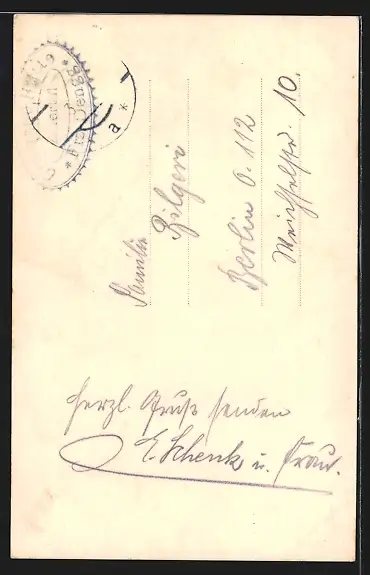 Familie
Bilgeri
Berlin O. 112
Weichselstr. 10.
herzl. Grüße senden
E. Schenk u. Frau.
a *